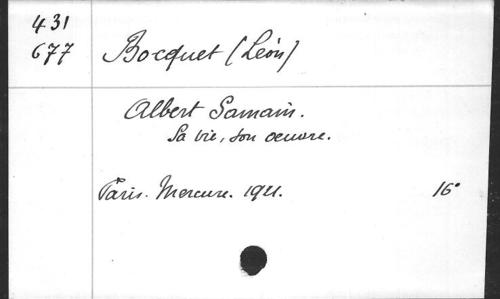 431
677
Bocquet (Léon)
Albert Samain.
Sa vie, son oeuvre.
Paris. Mercure. 1921.
16°